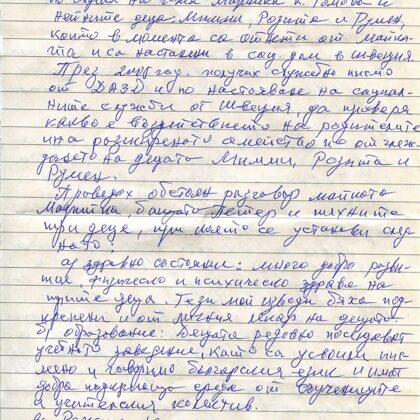 по случая на г-жа Мартина К. Томова и
нейните деца Мимми, Розита и Румен,
които в момента са отнети от майка-
та и са настанени в соц. дом в Швеция
През 2005 год. получих служебно писмо
от ДАЗД и по настояване на социал-
ните служби от Швеция, да проверя
какво е въздействието на родителите
и на разширеното семейство по отглеж-
дането на децата Мимми, Розита и
Румен.
Проведох обстоен разговор майката
Мартина, бащата Петер и техните
три деца, при която се установи след-
ното:
а) здравно състояние: много добро разви-
тие, физическо и психическо здраве на
трите деца. Тези мои изводи бяха под-
крепени и от личния лекар на децата
б) образование: Децата редовно посещават
учебното заведение, като са усвоили пис-
мено и говоримо българския език и имат
добра подкрепяща среда от съучениците
и учителския колектив.